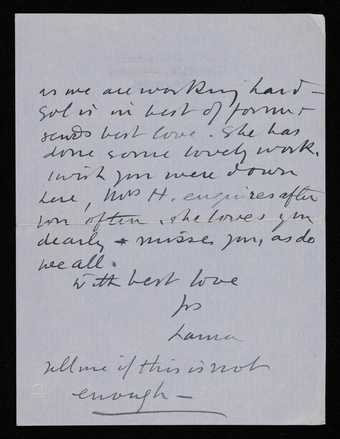 as we are working hard –
Sol is in best of form &
sends best love. She has
done some lovely work.
I wish you were down
here, Mrs H. enquires after
you often. She loves you
dearly & misses you, as do
we all.
With best love
Yrs
Laura
Tell me if this is not
enough –